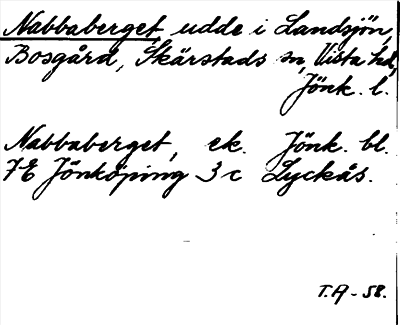 Nabbaberget, udde i Landsjön,
Bosgård, Skärstads sn, Vista hd,
Jönk. l.
Nabbaberget, ek. Jönk. bl.
7E Jönköping 3 c Lyckås.
T.A-58.